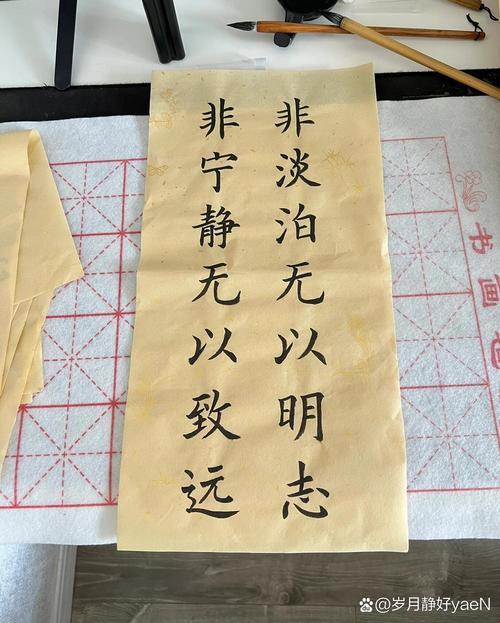 非淡泊无以明志
非宁静无以致远
书画毡
@岁月静好yaeN